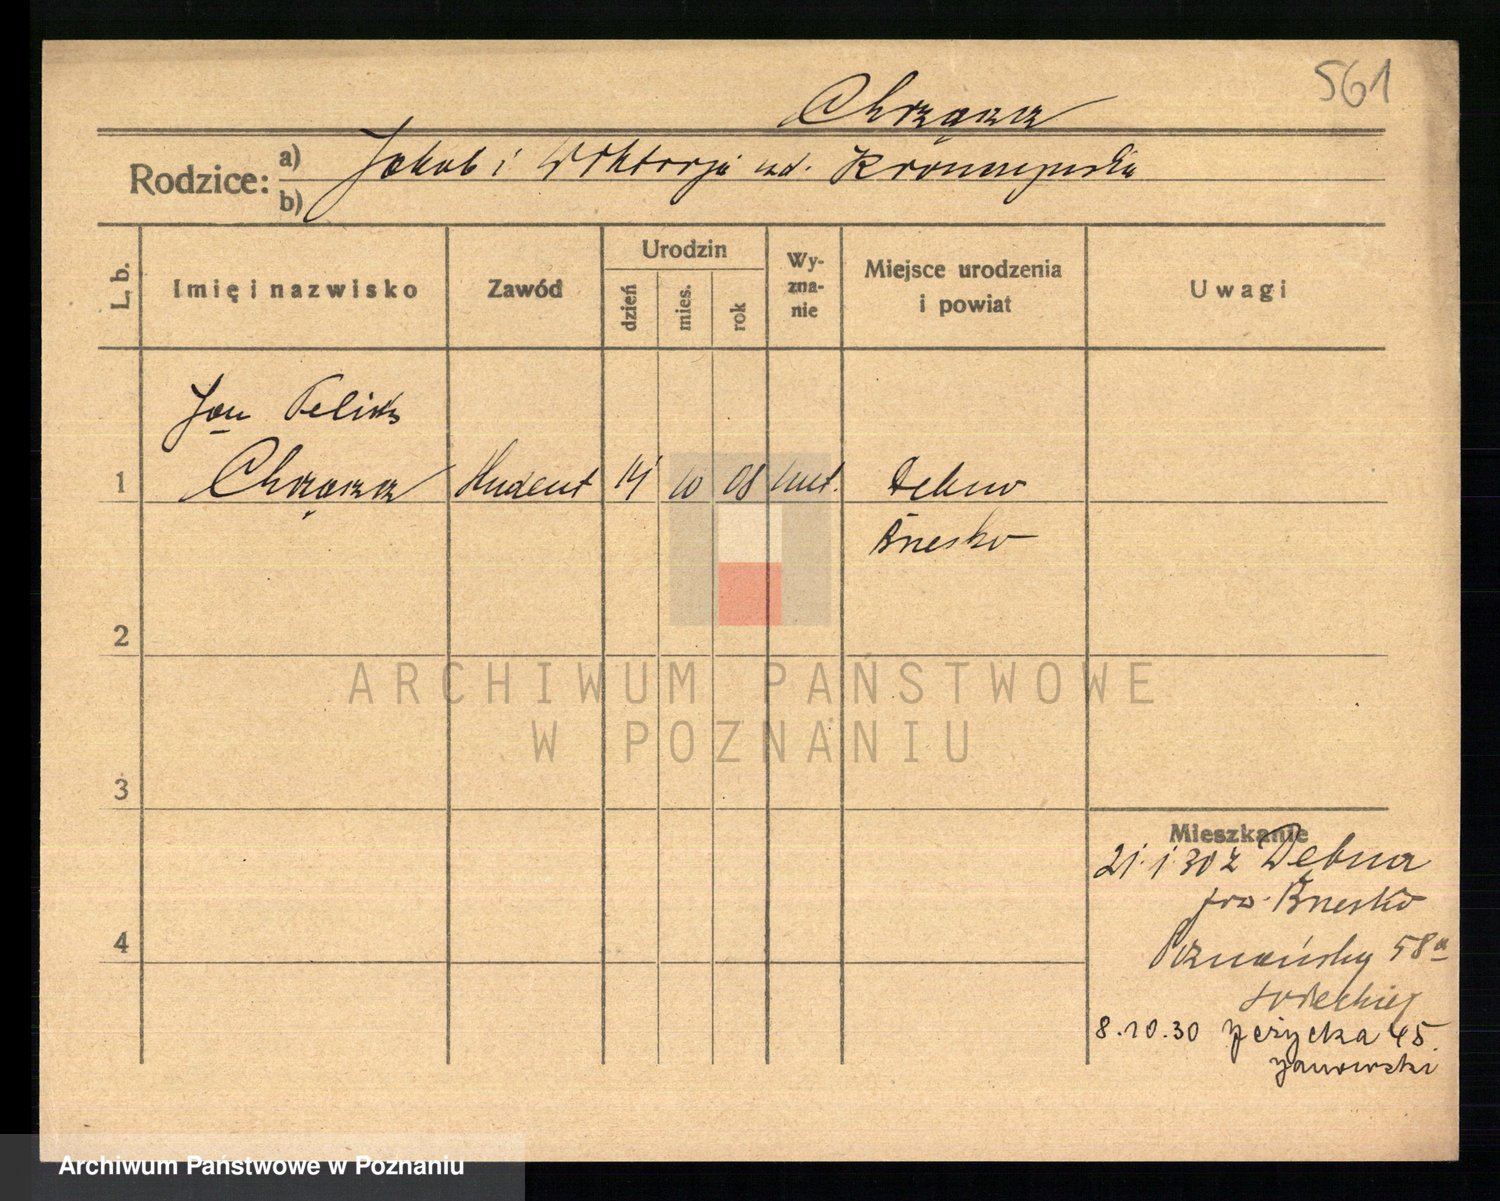 561
Chrząszcz
Rodzice: a) b)
Jakub i Wiktorja ud.
L. b.
Imię i nazwisko
Zawód
Urodzin
dzień
mies.
rok
Wy-
zna-
nie
Miejsce urodzenia
i powiat
Uwagi
Jan Feliks
1 Chrząszcz student 14 10 08 Dębno
2
3
4
ARCHIWUM PAŃSTWOWE
W POZNANIU
Mieszkanie
21.1.30 z Dębna
Poznańska 58a
8.10.30 Jeżycka 45.
Janowski
Archiwum Państwowe w Poznaniu